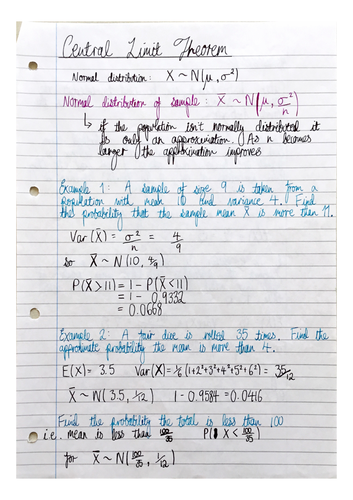 Central Limit Theorem
Normal distribution: X ~ N(μ, σ²)
Normal distribution of sample: X̄ ~ N(μ, σ²/n)
↳ if the population isn't normally distributed it
is only an approximation. As n becomes
larger the approximation improves
Example 1: A sample of size 9 is taken from a
population with mean 10 and variance 4. Find
the probability that the sample mean X̄ is more than 11.
Var(X̄) = σ²/n = 4/9
so X̄ ~ N(10, 4/9)
P(X̄ > 11) = 1 - P(X̄ < 11)
= 1 - 0.9332
= 0.0668
Example 2: A fair dice is rolled 35 times. Find the
approximate probability the mean is more than 4.
E(X) = 3.5 Var(X) = 1/6(1+2²+3²+4²+5²+6²) = 35/12
X̄ ~ N(3.5, 1/12) 1 - 0.9584 = 0.0416
Find the probability the total is less than 100
i.e. mean is less than 100/35 P(X < 100/35)
for X̄ ~ N(100/35, 1/12)